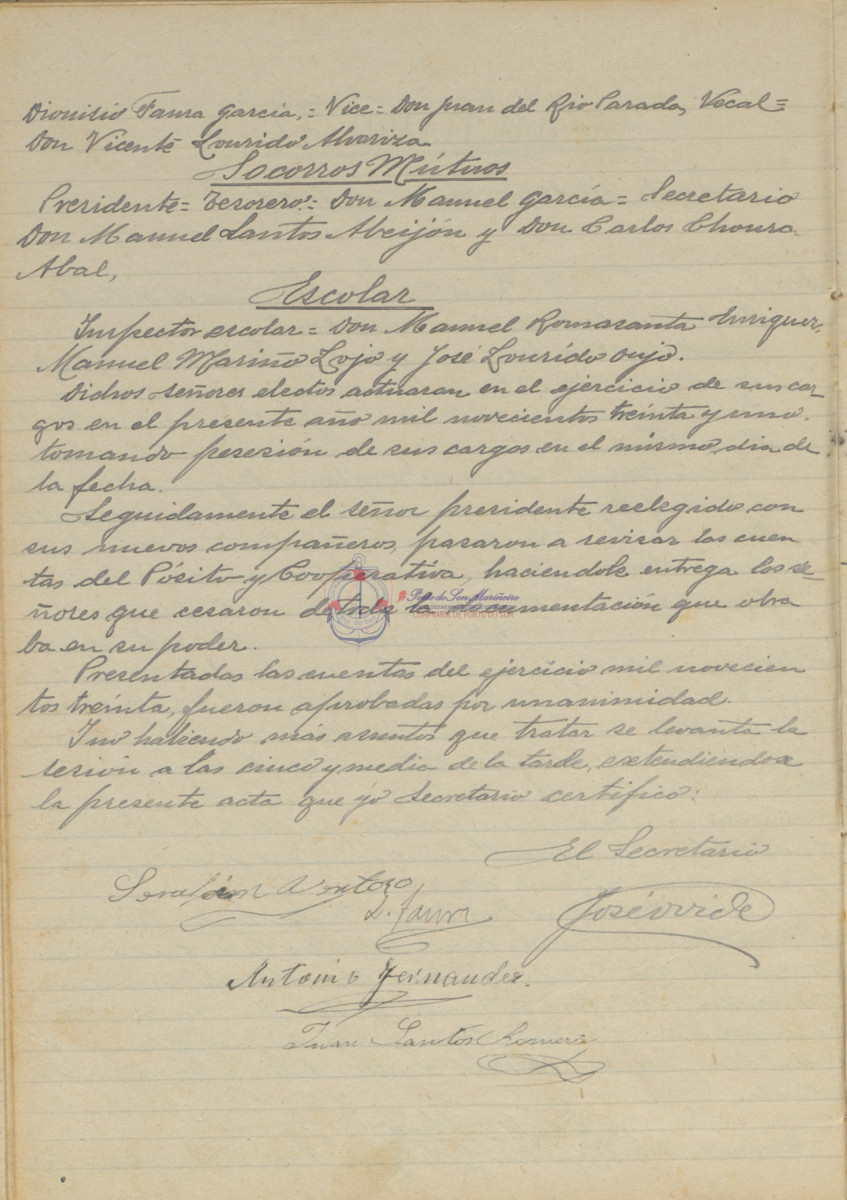 Dionisio Faura García, = Vice = Don Juan del Rio Parada, Vocal =
Don Vicente Lourido Alvariza
Socorros Mútuos
Presidente = Tesorero: = Don Manuel García = Secretario
Don Manuel Santos Abeijón y Don Carlos Choura
Abal,
Escolar
Inspector escolar = Don Manuel Romasanta Enriquez,
Manuel Mariño Lojo y José Lourido Oujo.
Dichos señores electos actuaran en el ejercicio de sus car-
gos en el presente año mil novecientos treinta y uno.
tomando posesión de sus cargos en el mismo dia de
la fecha.
Seguidamente el señor presidente reelegido con
sus nuevos compañeros, pasaron a revisar las cuen
tas del Pósito y Cooperativa, haciendole entrega los se-
ñores que cesaron de toda la documentación que obra
ba en su poder.
Presentadas las cuentas del ejercicio mil novecien
tos treinta, fueron aprobadas por unanimidad.
I no habiendo más asuntos que tratar se levanta la
sesión a las cinco y media de la tarde, extendiendose
la presente acta que yo Secretario certifico:
El Secretario
Serafín Ventoso
D. Faura
José Ovide
Antonio Fernandez.
Juan Santos Romero
Porto do Son Mariñeiro
CONFRARÍA DE PORTO DO SON